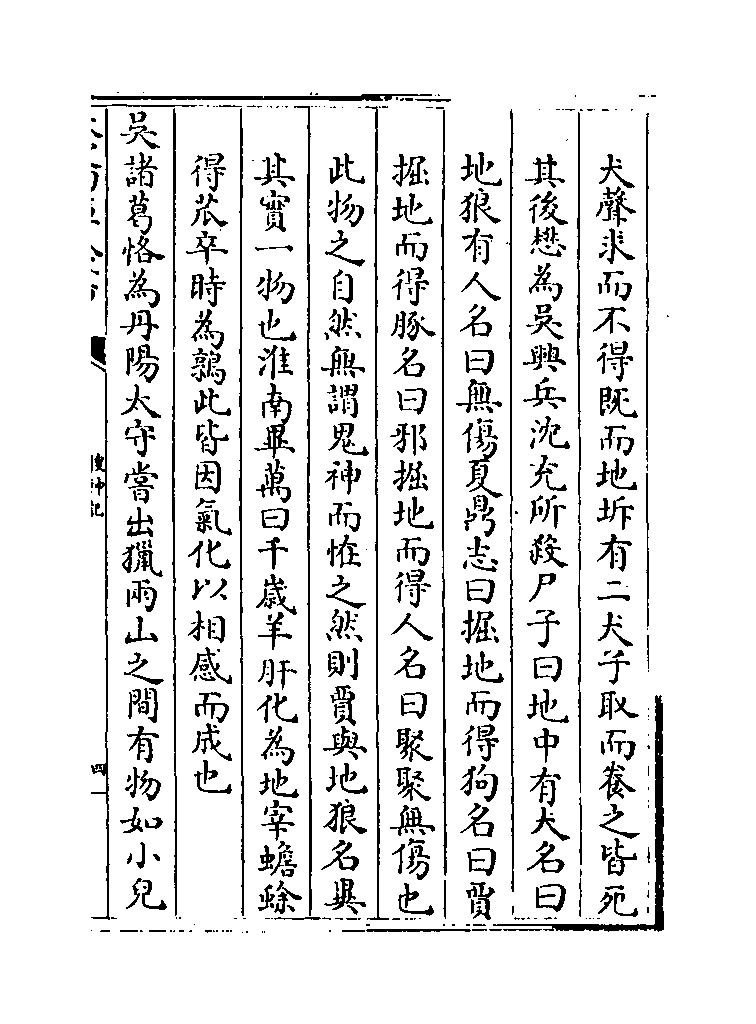 犬聲求而不得既而地坼有二犬子取而養之皆死
其後懋為吳興兵沈充所殺尸子曰地中有犬名曰
地狼有人名曰無傷夏鼎志曰掘地而得狗名曰賈
掘地而得豚名曰邪掘地而得人名曰聚聚無傷也
此物之自然無謂鬼神而恠之然則賈與地狼名異
其實一物也淮南畢萬曰千歲羊肝化為地宰蟾蜍
得苽卒時為鶉此皆因氣化以相感而成也
吳諸葛恪為丹陽太守嘗出獵兩山之間有物如小兒
搜神記
四